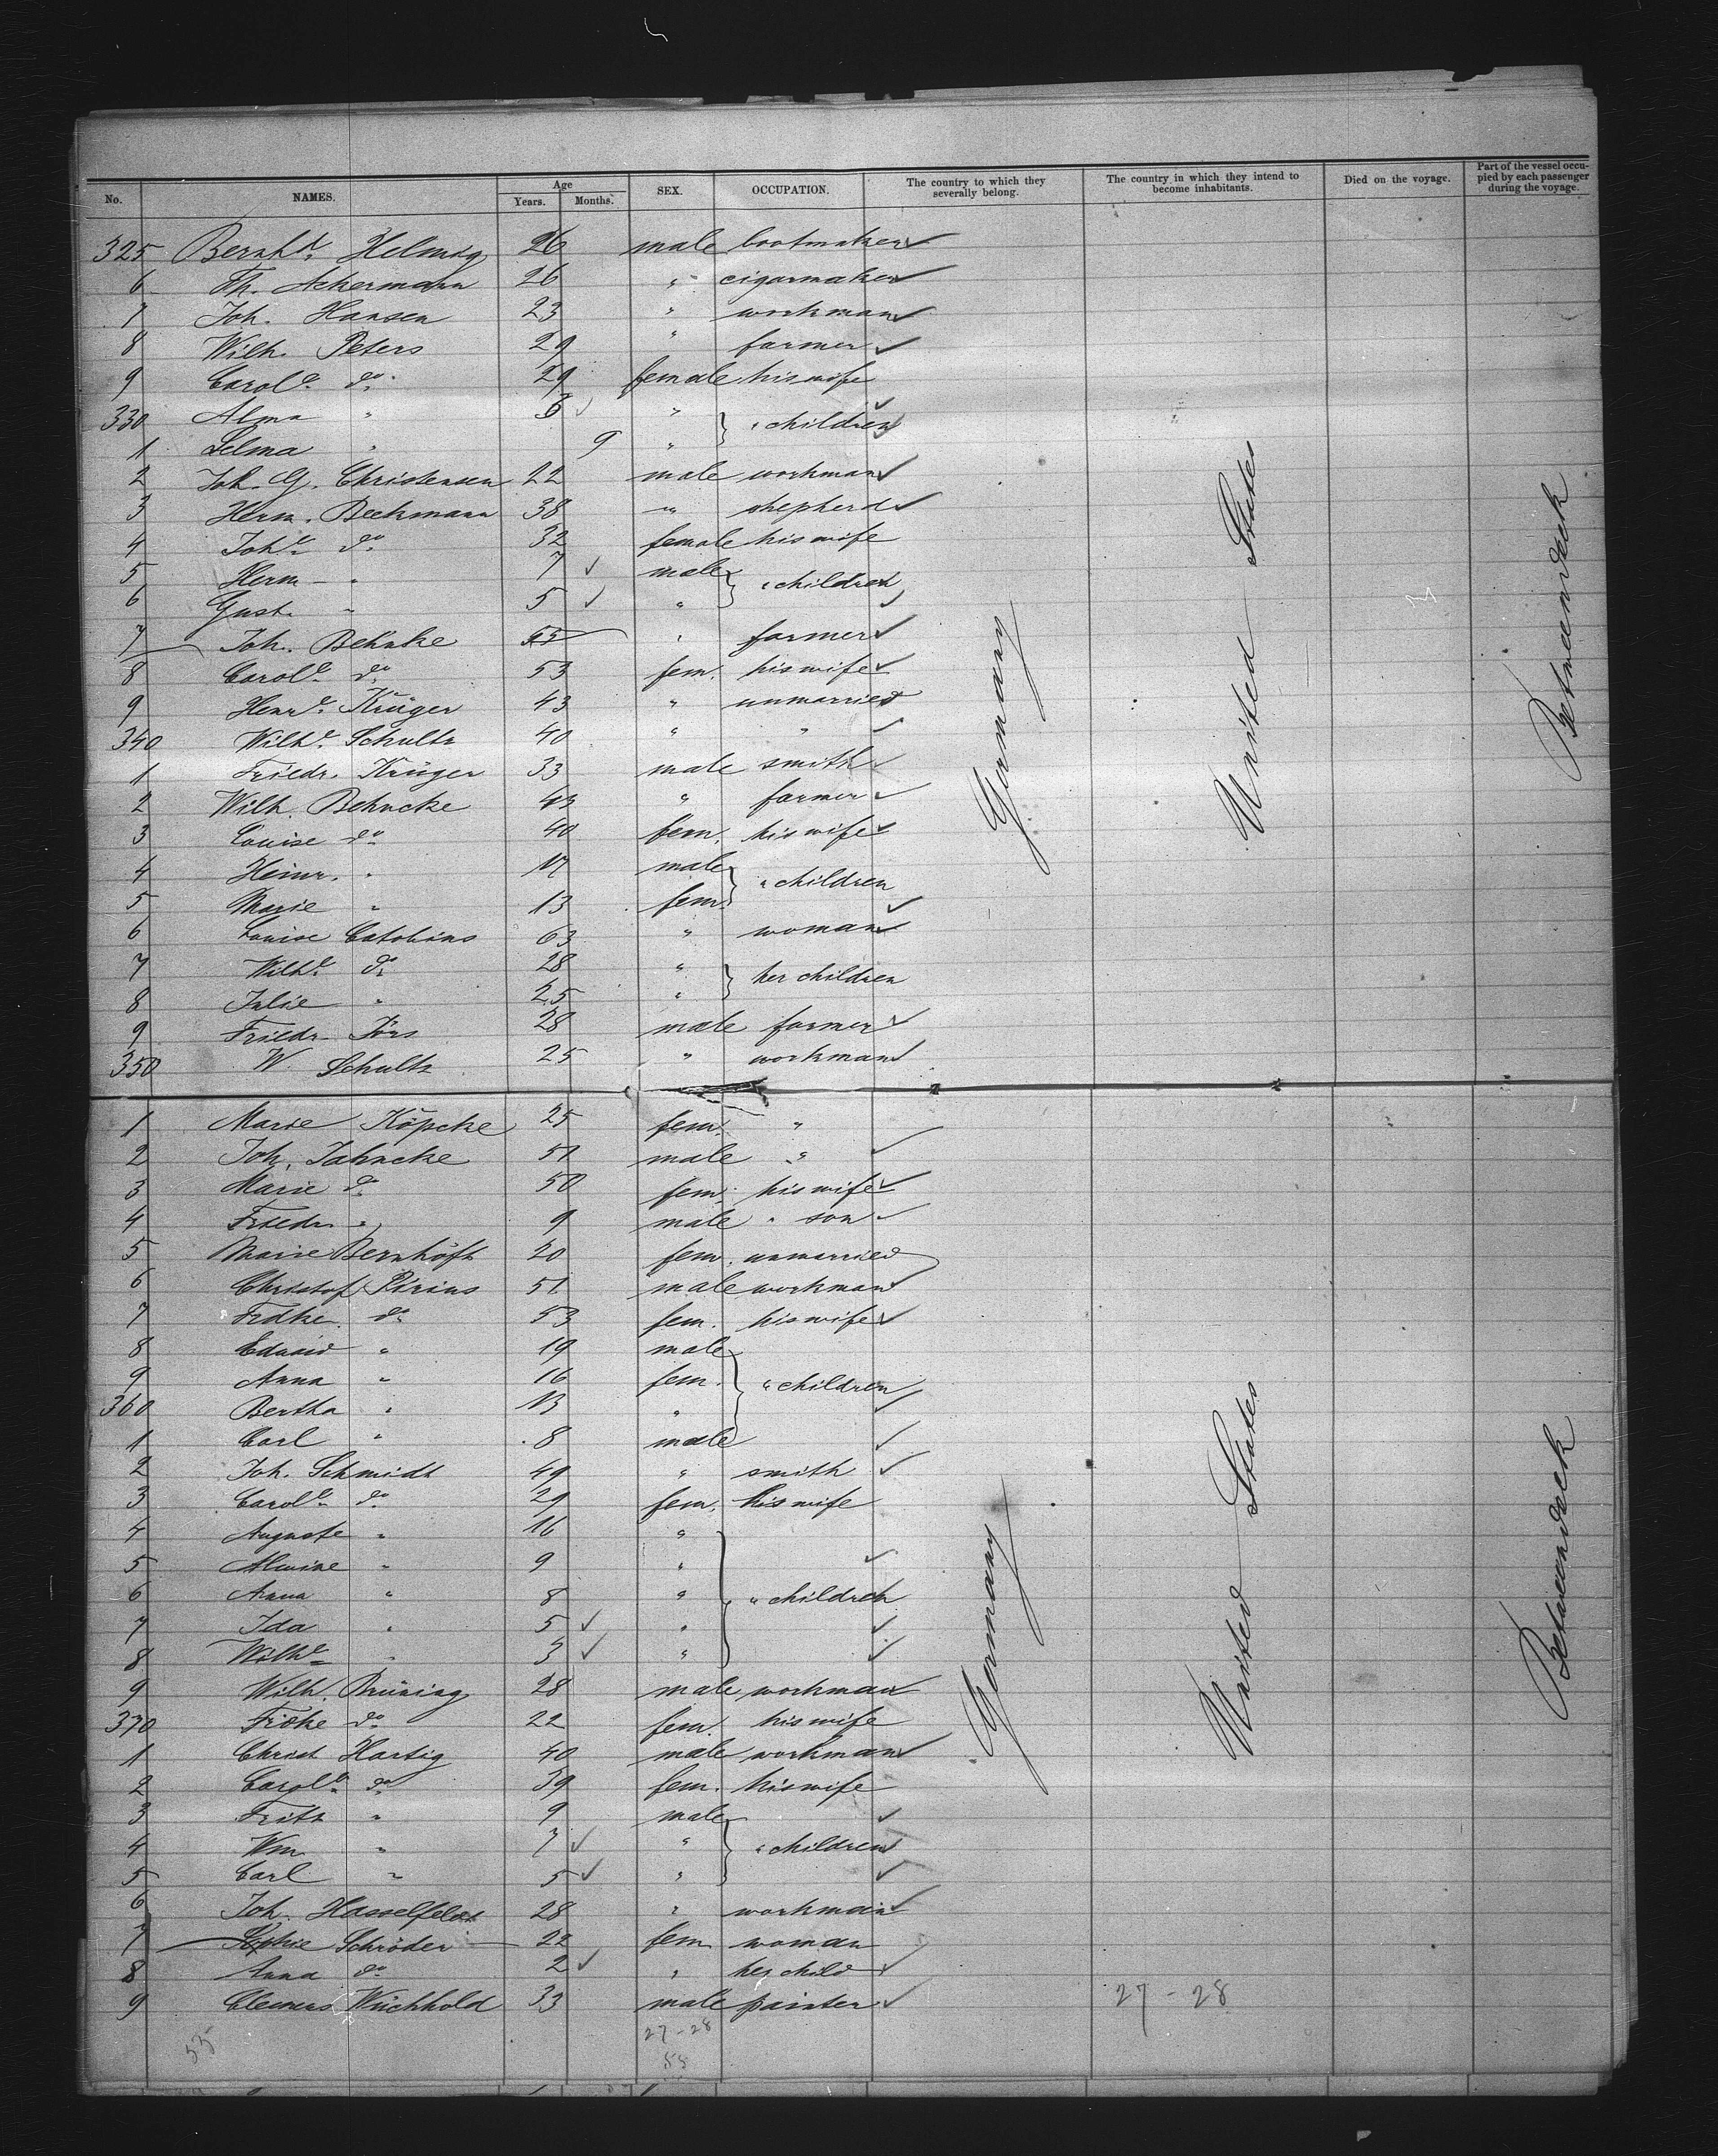 No. NAMES. Age Years. Months. SEX. OCCUPATION. The country to which they severally belong. The country in which they intend to become inhabitants. Died on the voyage. Part of the vessel occupied by each passenger during the voyage.
325 Bernhd. Helmig 26 male bootmaker
6 Th. Ackermann 26 " cigarmaker
7 Joh. Hansen 23 " workman
8 Wilh. Peters 29 " farmer
9 Carole. do. 29 female his wife
330 Alma " " } " children
1 Selma " 9 "
2 Joh. G. Christensen 22 male workman
3 Herm. Beckmann 38 " shepherd
4 Johe. do. 32 female his wife
5 Herm. " 7 male } " children
6 Gust. " 5 "
7 Joh. Behnke " farmer
8 Carole. do. 53 fem. his wife
9 Henre. Krüger 43 " unmarried
340 Wilhe. Schultz 40 " "
1 Friedr. Krüger 33 male smith
2 Wilh. Behncke 43 " farmer
3 Louise do. 40 fem. his wife
4 Heinr. " 17 male } " children
5 Marie " 13 fem.
6 Louise 63 " woman
7 Wilhe. do. 28 " } her children
8 Julie " 25 "
9 Friedr. Jörs 28 male farmer
350 W. Schultz 25 " workman
Germany
United States
Betweendeck
1 Marie Köpcke 25 fem. "
2 Joh. Jahncke 51 male "
3 Marie do. 50 fem. his wife
4 Friedr. " 9 male " son
5 Marie Bernhöft 20 fem. unmarried
6 Christof Pirius 51 male workman
7 Fridke. do. 53 fem. his wife
8 Eduard " 19 male } " children
9 Anna " 16 fem.
360 Bertha " 13 "
1 Carl " 8 male
2 Joh. Schmidt 49 " smith
3 Carole. do. 29 fem. his wife
4 Auguste " 16 "
5 Alwine " 9 "
6 Anna " 8 " } " children
7 Ida " 5 "
8 Wilhe. " 3 "
9 Wilh. Brüning 28 male workman
370 Fridke do. 22 fem. his wife
1 Christ Hartig 40 male workman
2 Carole. do. 39 fem. his wife
3 Fritz " 9 male
4 Wm " 7 " } " children
5 Carl " 5 "
6 Joh. Hasselfeldt 28 " workman
7 Sophie Schröder 22 fem. woman
8 Anna do. 2 " her child
9 Clemens Wüchhold 33 male painter
Germany
United States
Betweendeck
27 - 28
27 - 28
55
55